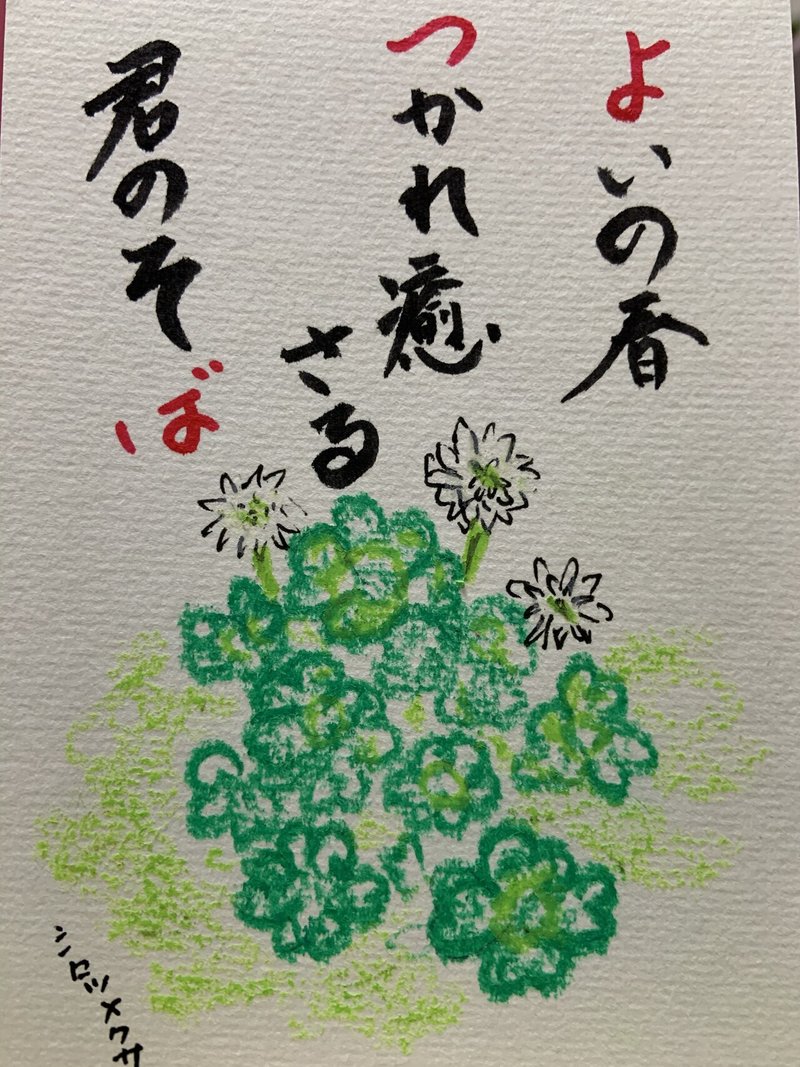 よいの春
つかれ癒
さる
君のそば
シロツメクサ